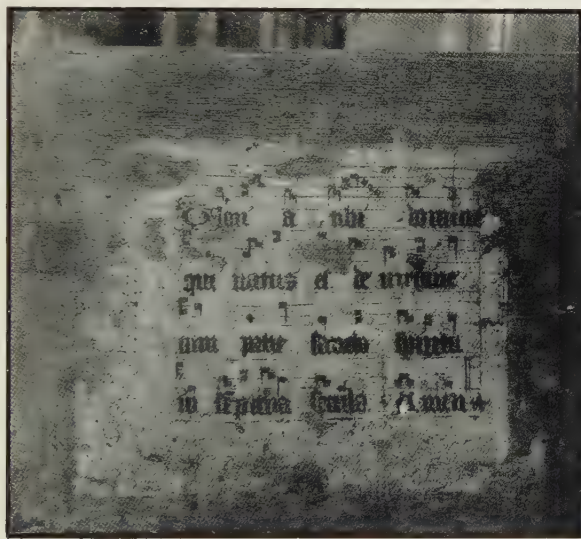 Glori a tibi domine
qui natus es de virgine
cum patre sancto spiritu
in sempiterna secula Amen